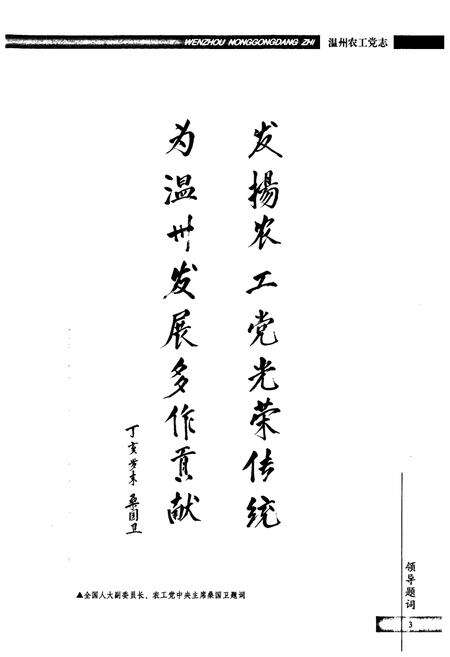 WENZHOU NONGGONGDANG ZHI 温州农工党志
发揚农工党光荣传统
为温州发展多作贡献
丁亥岁末 桑国卫
▲全国人大副委员长、农工党中央主席桑国卫题词
领导题词
3